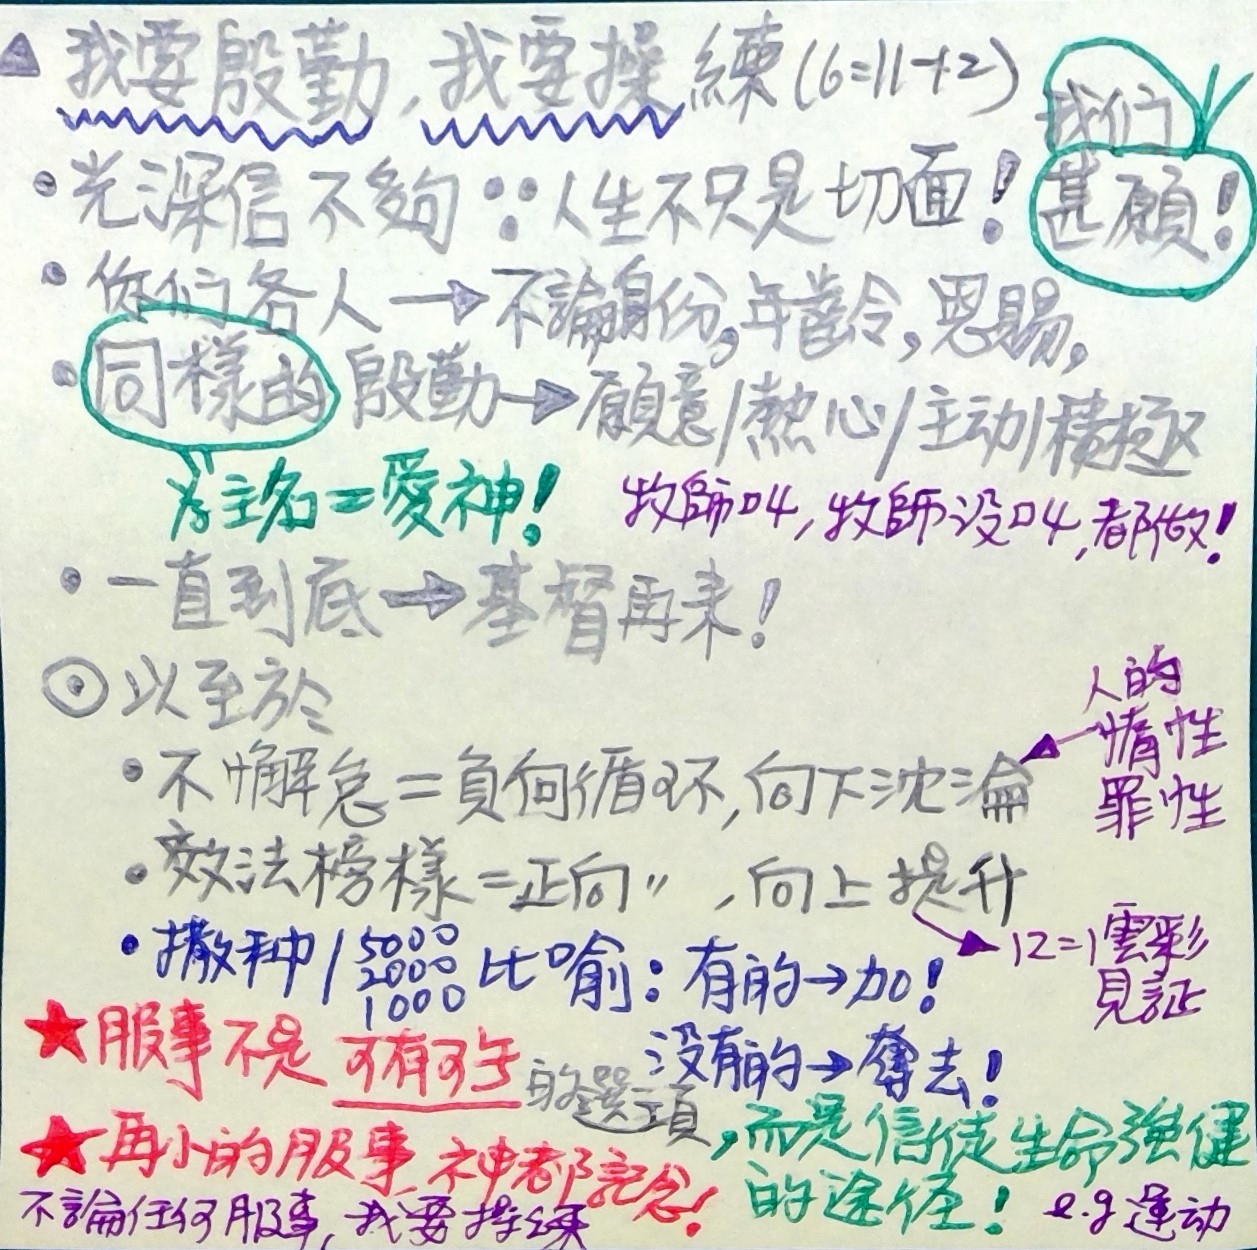 ▲ 我要殷勤,我要操練(6=11-12)
我们甚願!
• 光深信不夠∵人生不只是切面!
• 你们各人→不論身份,年齡,恩賜,
• 同樣的殷勤→願意/熱心/主动/積極
为主名=愛神!
牧師叫,牧師没叫,都做!
• 一直到底→基督再来!
⊙以至於
• 不懈怠=負向循环,向下沈淪
人的
惰性
罪性
• 效法榜樣=正向〃,向上提升
12=1雲彩
見証
• 撒种/5000 2000 1000 比喻:有的→加!
没有的→奪去!
★服事不是可有可无的選項,而是信徒生命強健的途徑!
e.g 運动
★再小的服事,神都記念!
不論任何服事,我要操練